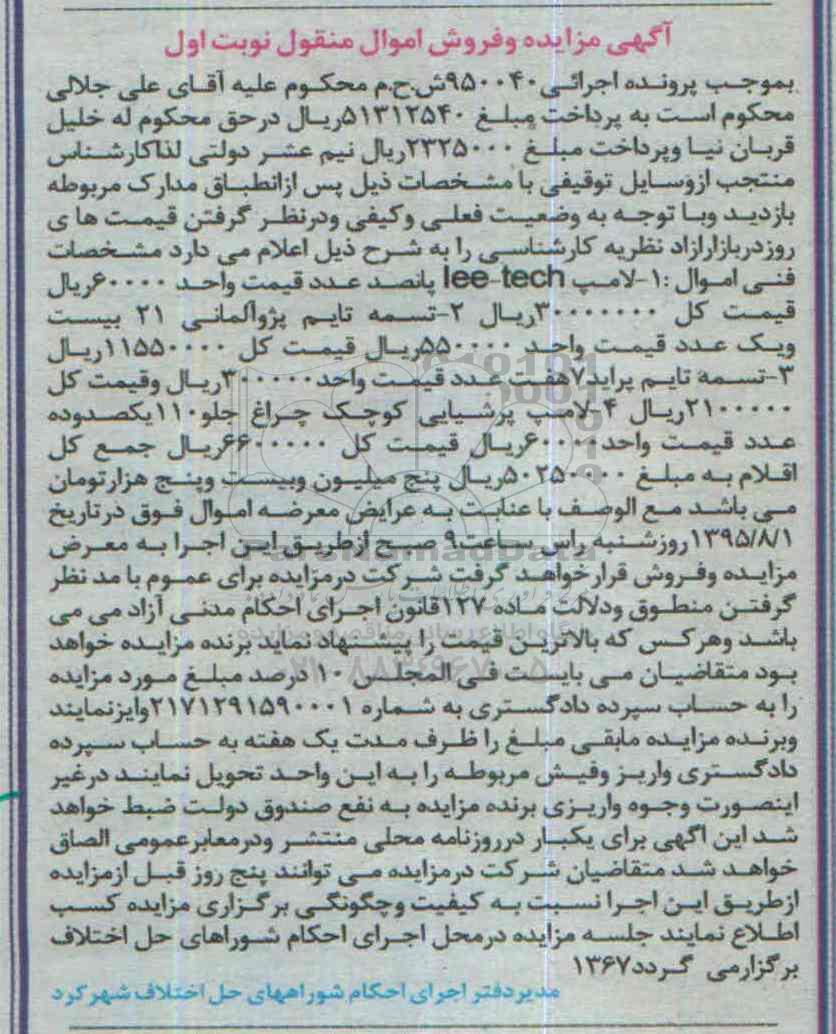 آگهی مزایده وفروش اموال منقول نوبت اول
بموجب پرونده اجرائی ۹۵۰۰۴۰ش.ح.م محکوم علیه آقای علی جلالی
محکوم است به پرداخت مبلغ ۵۱۳۱۲۵۴۰ریال درحق محکوم له خلیل
قربان نیا وپرداخت مبلغ ۲۳۲۵۰۰۰ریال نیم عشر دولتی لذاکارشناس
منتجب ازوسایل توقیفی با مشخصات ذیل پس ازانطباق مدارک مربوطه
بازدید وبا توجه به وضعیت فعلی وکیفی ودرنظر گرفتن قیمت ها ی
روزدربازارازاد نظریه کارشناسی را به شرح ذیل اعلام می دارد مشخصات
فنی اموال :۱-لامپ lee-tech پانصد عدد قیمت واحد ۶۰۰۰۰ریال
قیمت کل ۳۰۰۰۰۰۰۰ریال ۲-تسمه تایم پژوآلمانی ۲۱ بیست
ویک عدد قیمت واحد ۵۵۰۰۰۰ریال قیمت کل ۱۱۵۵۰۰۰۰ریال
۳-تسمه تایم پراید۷هفت عدد قیمت واحد۳۰۰۰۰۰ریال وقیمت کل
۲۱۰۰۰۰۰ریال ۴-لامپ پرشیایی کوچک چراغ جلو۱۱۰یکصدوده
عدد قیمت واحد۶۰۰۰۰ریال قیمت کل ۶۶۰۰۰۰۰ریال جمع کل
اقلام به مبلغ ۵۰۲۵۰۰۰۰ریال پنج میلیون وبیست وپنج هزارتومان
می باشد مع الوصف با عنابت به عرایض معرضه اموال فوق درتاریخ
۱۳۹۵/۸/۱روزشنبه راس ساعت۹ صبح ازطریق این اجرا به معرض
مزایده وفروش قرارخواهد گرفت شرکت درمزایده برای عموم با مد نظر
گرفتن منطوق ودلالت ماده ۱۲۷قانون اجرای احکام مدنی آزاد می می
باشد وهرکس که بالاترین قیمت را پیشنهاد نماید برنده مزایده خواهد
بود متقاضیان می بایست فی المجلس ۱۰درصد مبلغ مورد مزایده
را به حساب سپرده دادگستری به شماره ۲۱۷۱۲۹۱۵۹۰۰۰۱وایزنمایند
وبرنده مزایده مابقی مبلغ را ظرف مدت یک هفته به حساب سپرده
دادگستری واریز وفیش مربوطه را به این واحد تحویل نمایند درغیر
اینصورت وجوه واریزی برنده مزایده به نفع صندوق دولت ضبط خواهد
شد این اگهی برای یکبار درروزنامه محلی منتشر ودرمعابرعمومی الصاق
خواهد شد متقاضیان شرکت درمزایده می توانند پنج روز قبل ازمزایده
ازطریق این اجرا نسبت به کیفیت وچگونگی برگزاری مزایده کسب
اطلاع نمایند جلسه مزایده درمحل اجرای احکام شوراهای حل اختلاف
برگزارمی گردد۱۳۶۷
مدیردفتر اجرای احکام شوراههای حل اختلاف شهرکرد
ParsNamadData
۰۲۱-۸۸۳۴۹۶۷۰-۵